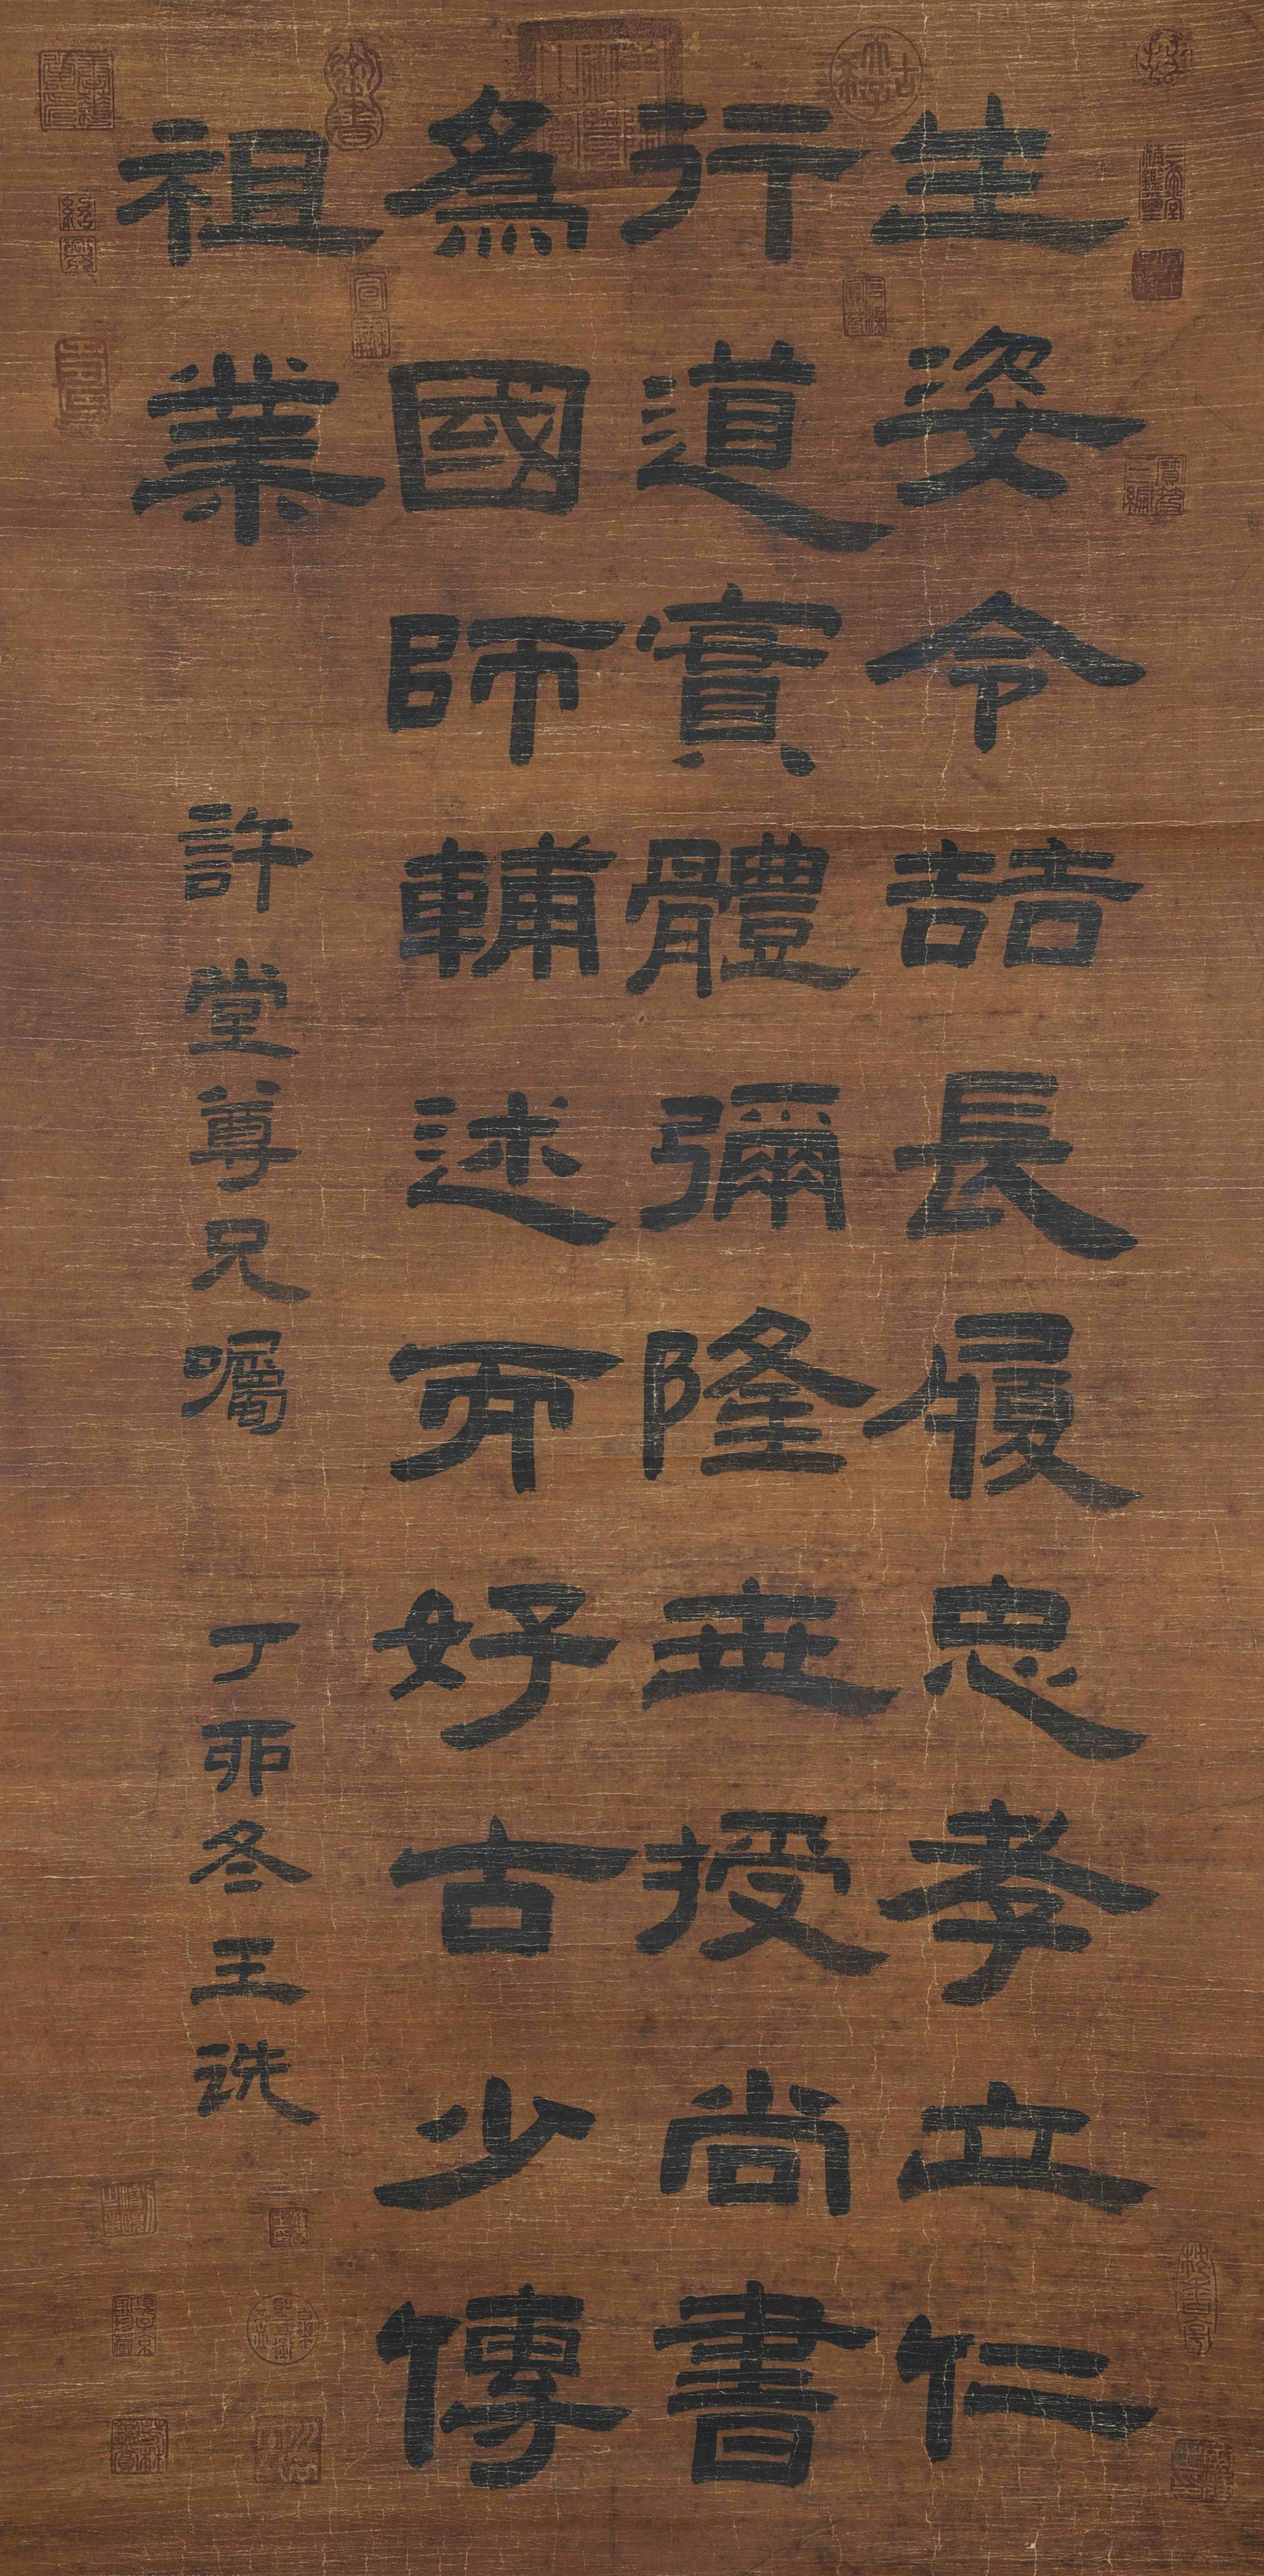 生姿令喆長履忠孝立仁
行道實體彌隆世授尚書
為國師輔述而好古少傳
祖業
許堂尊兄囑
丁卯冬王詵